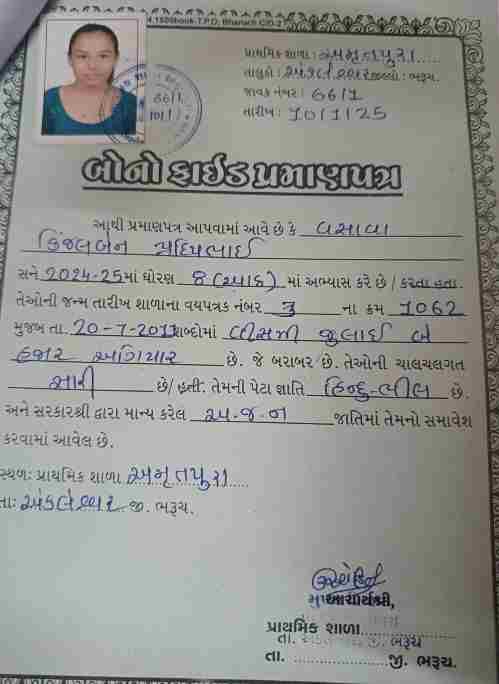 પ્રાથમિક શાળા : અમૃતપુરા
તાલુકો : અંકલેશ્વર જીલ્લો : ભરૂચ.
જાવક નંબર : 66/1
તારીખ : 10/1/25
બોનોફાઈડ પ્રમાણપત્ર
આથી પ્રમાણપત્ર આપવામાં આવે છે કે વસાવા
કિંજલબેન પ્રદિપભાઈ
સને 2024-25માં ધોરણ 8 (આઠ) માં અભ્યાસ કરે છે / કરતા હતા.
તેઓની જન્મ તારીખ શાળાના વયપત્રક નંબર 3 ના ક્રમ 1062
મુજબ તા. 20-7-2011 શબ્દોમાં વીસમી જુલાઈ બે
હજાર અગિયાર છે. જે બરાબર છે. તેઓની ચાલચલગત
સારી છે/ હતી. તેમની પેટા જાતિ હિન્દુ-ભીલ છે.
અને સરકારશ્રી દ્વારા માન્ય કરેલ અ.જ.જા જાતિમાં તેમનો સમાવેશ
કરવામાં આવેલ છે.
સ્થળ: પ્રાથમિક શાળા અમૃતપુરા
તા: અંકલેશ્વર જી. ભરૂચ.
મુખ્ય આચાર્યશ્રી,
પ્રાથમિક શાળા
તા. જી. ભરૂચ
તા. જી. ભરૂચ.